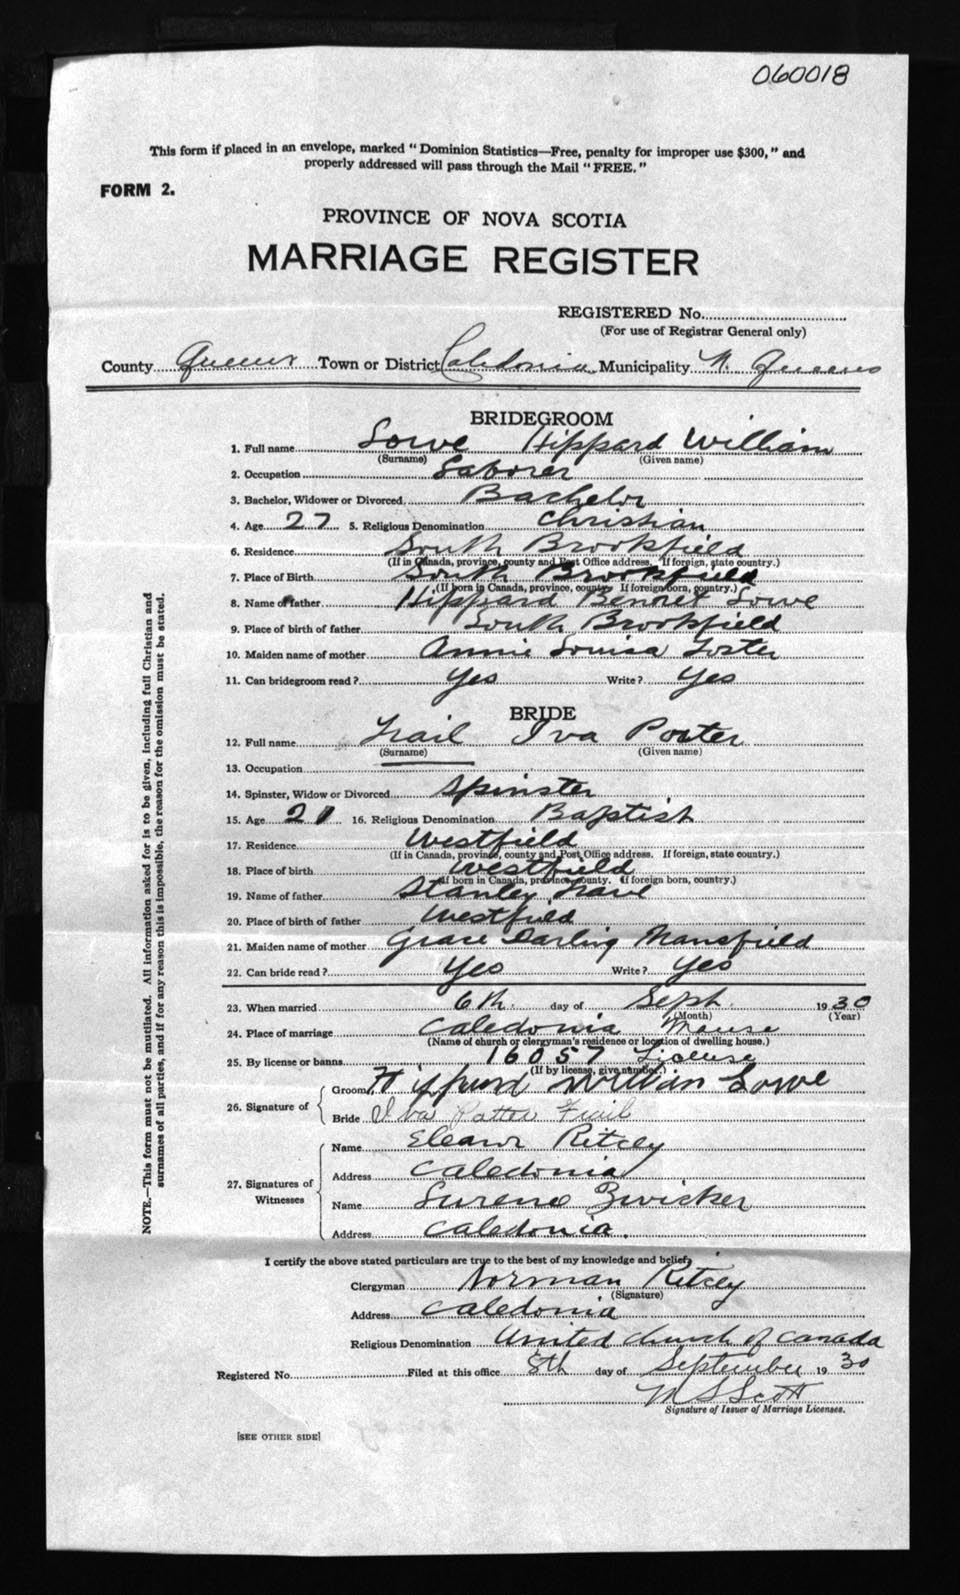 060018
This form if placed in an envelope, marked "Dominion Statistics—Free, penalty for improper use $300," and
properly addressed will pass through the Mail "FREE."
FORM 2.
PROVINCE OF NOVA SCOTIA
MARRIAGE REGISTER
REGISTERED No.
(For use of Registrar General only)
County Queens Town or District Caledonia Municipality N. Queens
BRIDEGROOM
1. Full name Lowe Hippard William
(Surname) (Given name)
2. Occupation Laborer
3. Bachelor, Widower or Divorced Bachelor
4. Age 27 5. Religious Denomination Christian
6. Residence South Brookfield
(If in Canada, province, county and Post Office address. If foreign, state country.)
7. Place of Birth South Brookfield
(If born in Canada, province, county. If foreign born, country.)
8. Name of father Hippard Bennet Lowe
9. Place of birth of father South Brookfield
10. Maiden name of mother Annie Louisa
11. Can bridegroom read? Yes Write? Yes
BRIDE
12. Full name Frail Iva
(Surname) (Given name)
13. Occupation
14. Spinster, Widow or Divorced Spinster
15. Age 21 16. Religious Denomination Baptist
17. Residence Westfield
(If in Canada, province, county and Post Office address. If foreign, state country.)
18. Place of birth Westfield
(If born in Canada, province, county. If foreign born, country.)
19. Name of father Stanley
20. Place of birth of father Westfield
21. Maiden name of mother Grace Darling Mansfield
22. Can bride read? Yes Write? Yes
23. When married 6th day of Sept. 1930
(Month) (Year)
24. Place of marriage Caledonia Manse
(Name of church or clergyman's residence or location of dwelling house.)
25. By license or banns 16057 License
(If by license, give number.)
26. Signature of
Groom Hippard William Lowe
Bride Iva Frail
27. Signatures of Witnesses
Name Eleanor Ritcey
Address Caledonia
Name Zwicker
Address Caledonia.
I certify the above stated particulars are true to the best of my knowledge and belief,
Clergyman Norman Ritcey
(Signature)
Address Caledonia
Religious Denomination United Church of Canada
Registered No. Filed at this office 8th day of September 1930
M S Scott
Signature of Issuer of Marriage Licenses.
[SEE OTHER SIDE]
NOTE.—This form must not be mutilated. All information asked for is to be given, including full Christian and
surnames of all parties, and if for any reason this is impossible, the reason for the omission must be stated.